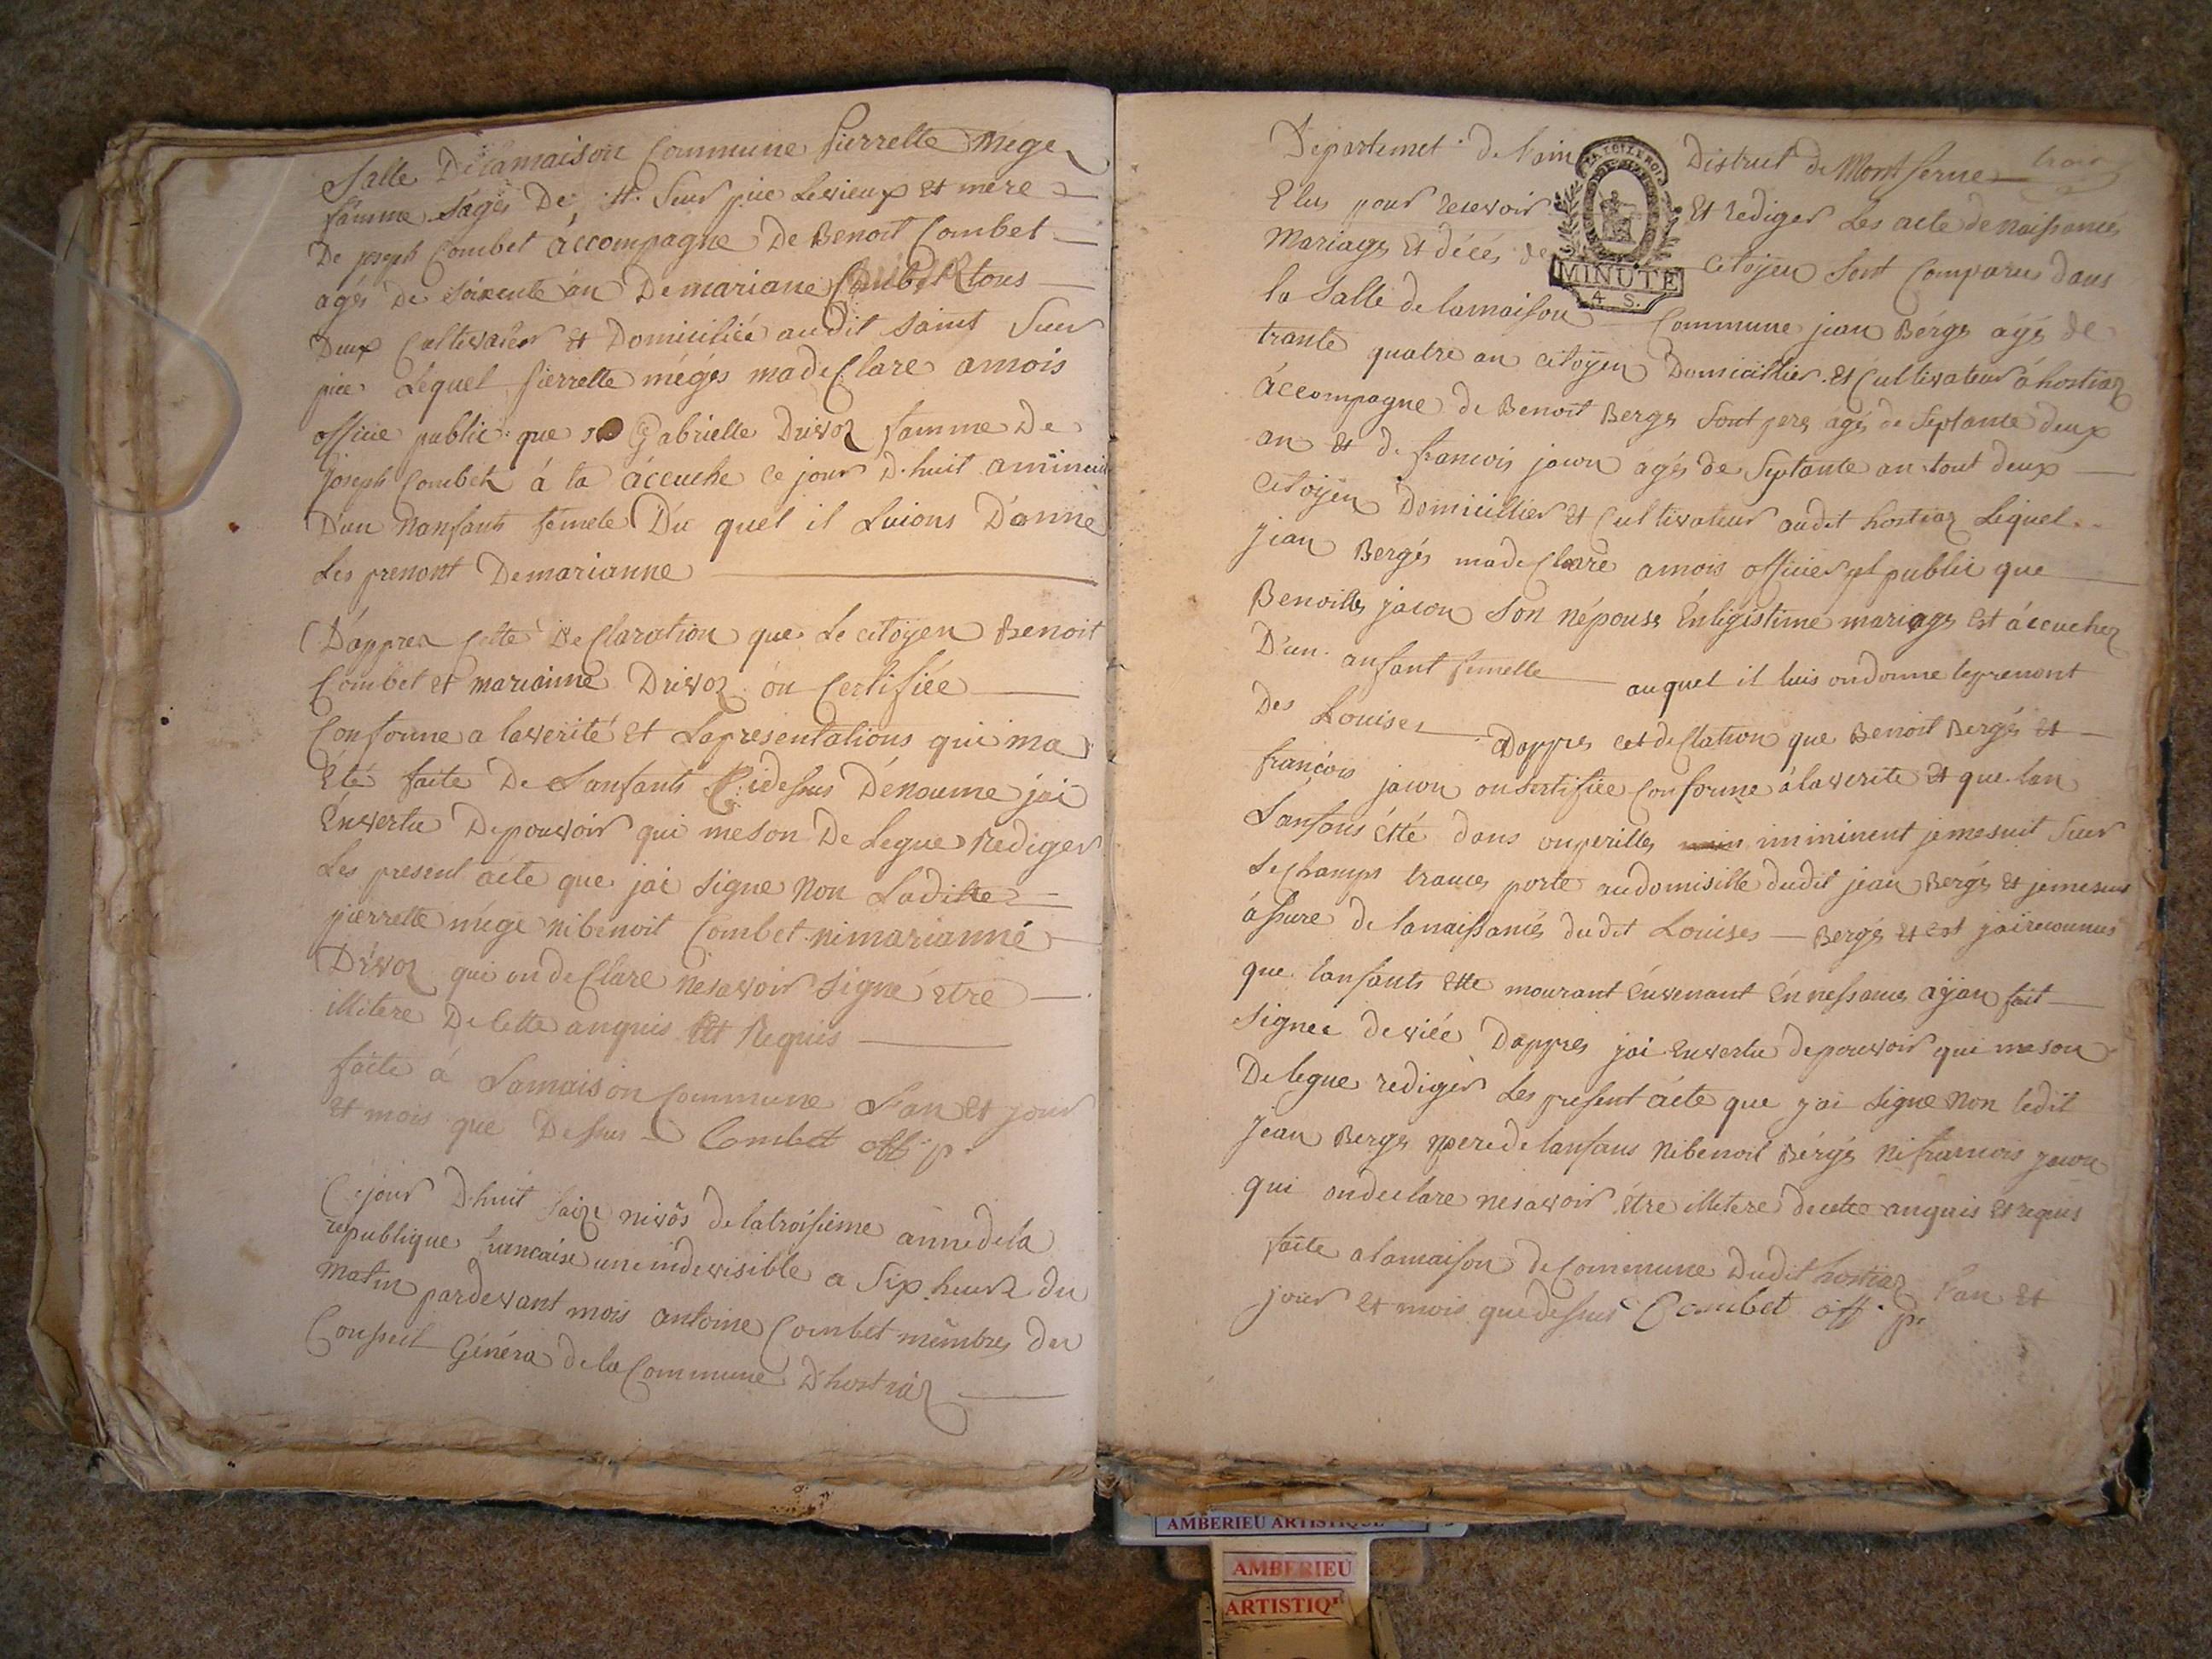 Salle De lamaison Commune pierrette mege
famme sages De st. Seur pie Levieux et mere
De joseph Combet accompagne De Benoit Combet
agés De soixente an De mariane tous
Deux Cultivateur et Domicilié audit saint Seur
pie Lequel pierrette mégés madeClare amois
officie public que Gabrielle Drivoz famme De
joseph Combet á ta áccuche ce jour D'huit aminuit
D'un Nanfants femele Du quel il Luions D'anne
Les prenont Demarianne
D'apprez Cette DeClaration que Le citoÿen Benoit
Combet et marianne Drivoz on Certifiée
Conforme a laverité et Lapresentations qui ma
Été faite De Lanfants Cidessus Dénoume jai
Énvertu Depouvoir qui meson De Legue Rediger
Les present acte que jai signe Non Laditte
pierrette mége nibenoit Combet nimarianne
Drivoz qui on deClare nesavoir signé etre
illitere De cette anquis Et Requis
faite á Lamaison Commune L'an et jour
et mois que Dessus Combet off. p.
Cejour D'huit saize nivôs de latroisieme annedela
republique francaise une indevisible a Six heurs du
matin pardevant mois antoine Combet membres du
Conseil Généra de la Commune D'hostiaz
Departemet de l'ain District de Montferme trois
Elus pour recevoir Et rediger Les acte de naissances
LA LOI LE ROI
Mariages Et décés de citoÿen sont Comparu dans
MINUTE
4 S.
la Salle de lamaison Commune jean Bérgs agé de
trante quatre an citoÿen Domicillier et Cultivateur á hostiaz
áccompagne de Benoit Bergs sont pere agés de Septante deux
an et de francois jacon agés de Septante an tout deux
citoÿen Domicillier et Cultivateur audit hostiaz Lequel
jean Bergés madeClare amois officier public que
Benoitte jacon son népouse Énligistime mariage Est áccuchez
D'un anfant femelle auquel il luis ondonne leprenont
Des Louises Dappres cet declation que Benoit Bergés et
francois jacon onsertifiée Conforme á laverite et que lan
Lanfans étté dans onperilles imminent jemesuit Seur
Lechamps trances porte audomisille dudit jean Bergés et jemesuis
ássure de lanaissances dudit Louises Bergés et est jaireconnus
que lanfants Ette mourant Énvenant Énnessance aÿan fait
signee deviée Dappres jai Envertu depouvoir qui meson
Delegue rediger Les present acte que jai signe non ledit
jean Bergés perede lanfans Nibenoit Bérgés Nifrancois jacon
qui ondeclare nesavoir étre illetere decette anquis et requis
faite alamaison de Commune Dudit hostiaz l'an et
jour et mois quedessus Combet off. p.
AMBERIEU ARTISTIQUE
AMBERIEU
ARTISTIQ